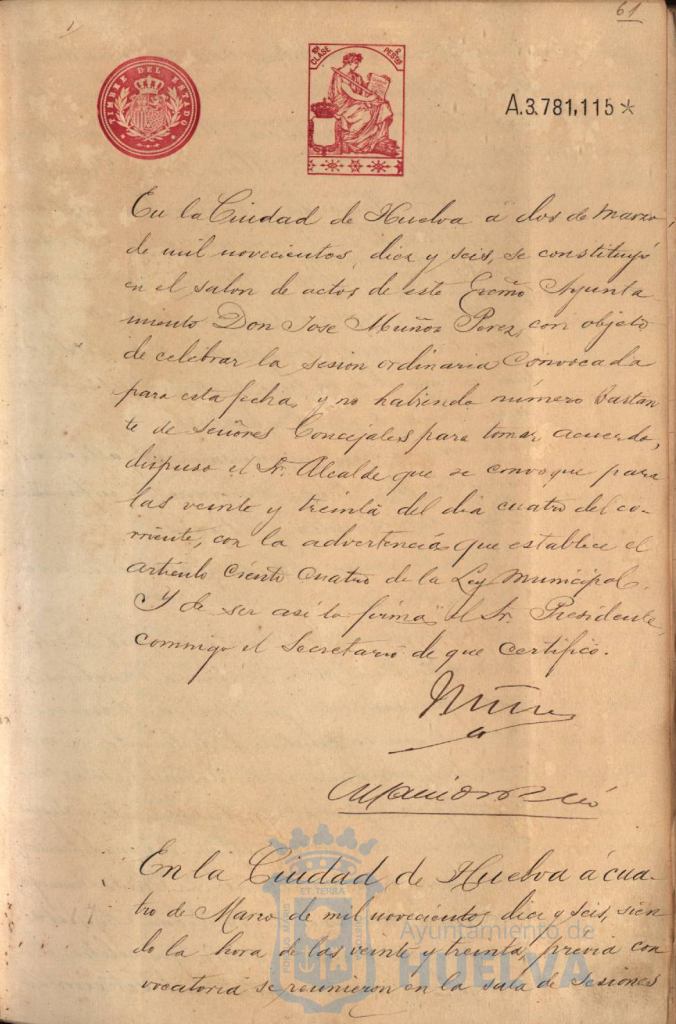 61
TIMBRE DEL ESTADO
10ª CLASE
2 PESETAS
A.3.781,115*
En la Ciudad de Huelva á dos de Marzo,
de mil novecientos, diez y seis, se constituyó
en el salon de actos de este Excmo Ayunta
miento Don Jose Muñoz Perez, con objeto
de celebrar la sesion ordinaria convocada
para esta fecha, y no habiendo número bastan
te de Señores Concejales para tomar acuerdo,
dispuso el Sr. Alcalde que se convoque para
las veinte y treinta del dia cuatro del co-
rriente, con la advertencia que establece el
artículo ciento cuatro de la Ley Municipal.
Y de ser asi lo firma el Sr. Presidente,
conmigo el Secretario de que certifico.
Muñoz
En la Ciudad de Huelva á cua-
tro de Marzo de mil novecientos diez y seis, sien
do la hora de las veinte y treinta, previa con
vocatoria se reunieron en la sala de Sesiones
ET TERRA
Ayuntamiento de
HUELVA